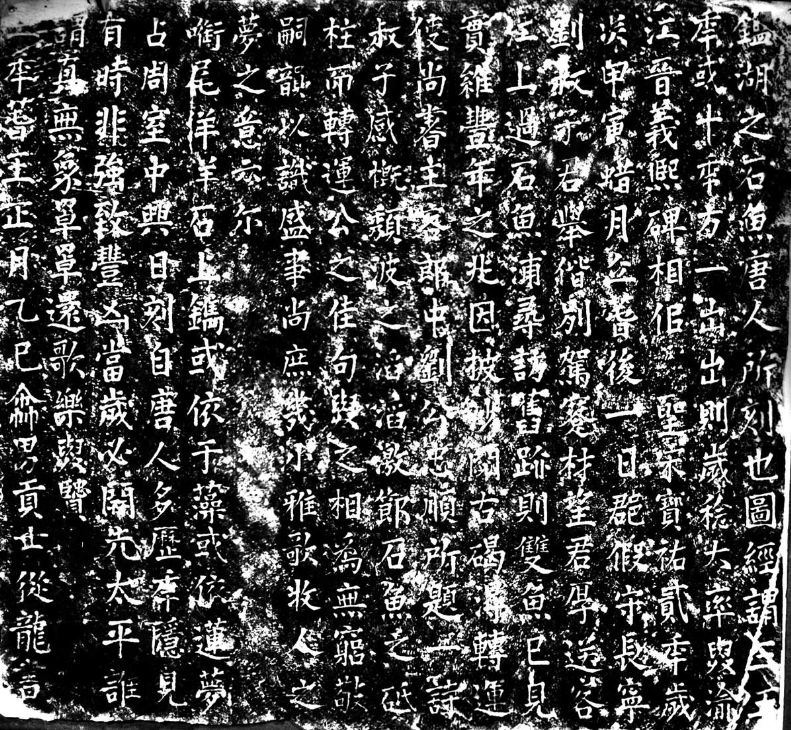 鑑湖之石魚唐人所刻也圖經謂三五
年或十年方一出出則歲稔大率與渝
江晉義熙碑相侣 聖宋寶祐貳年歲
次甲寅蜡月立春後一日郡假守長寧
劉叔子君舉偕別駕蹇材望君厚送客
江上過石魚浦尋訪舊跡則雙魚已見
實維豐年之兆因披沙閱古碣得轉運
使尚書主客郎中劉公忠順所題一詩
叔子感慨頹波之滔滔激節石魚之砥
柱而轉運公之佳句與之相為無窮敬
嗣韻以識盛事尚庶幾小雅歌牧人之
夢之意云尔
銜尾洋洋石上鐫或依于藻或依蓮夢
占周室中興日刻自唐人多歷年隱見
有時非強致豐凶當歲必開先太平誰
謂真無象罩罩還歌樂與賢
年春王正月乙巳 男貢士從龍書